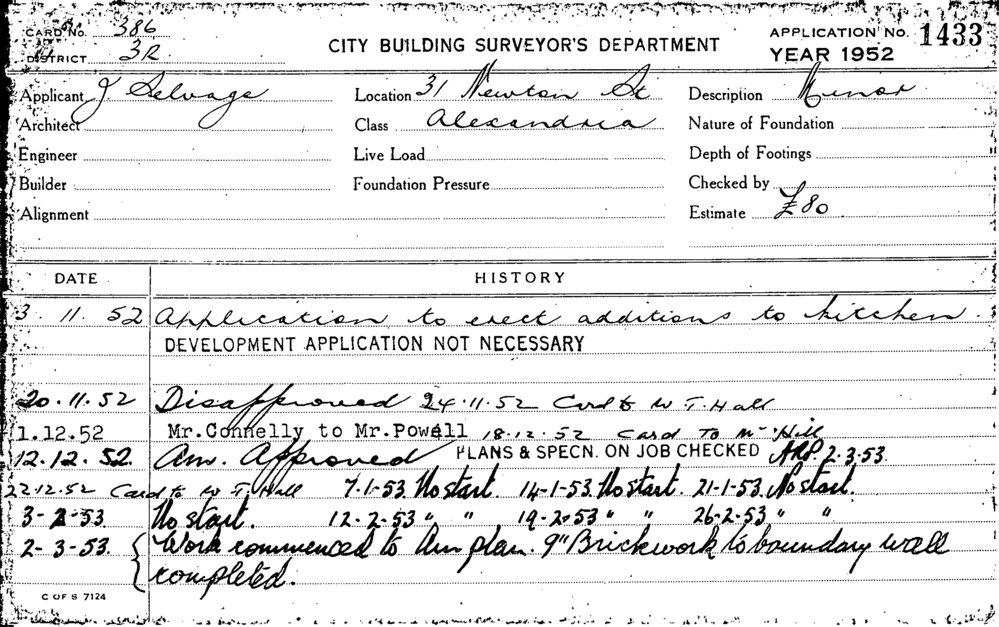 CARD No. 386
DISTRICT 3R
CITY BUILDING SURVEYOR'S DEPARTMENT
APPLICATION No. 1433
YEAR 1952
Applicant J Selvage
Location 31 Newton St
Description Minor
Architect
Class Alexandria
Nature of Foundation
Engineer
Live Load
Depth of Footings
Builder
Foundation Pressure
Checked by
Alignment
Estimate £80
DATE HISTORY
3. 11. 52 Application to erect additions to kitchen.
DEVELOPMENT APPLICATION NOT NECESSARY
20.11.52 Disapproved 24.11.52 Card to W T. Hall
1.12.52 Mr.Connelly to Mr.Powell 18.12.52 Card To Mr Hill
12.12.52. Am. Approved PLANS & SPECN. ON JOB CHECKED 2.3.53.
22.12.52 Card to W T. Hall 7-1-53. No start. 14-1-53. No start. 21-1-53. No start.
3-2-53. No start. 12-2-53 " " 19-2-53 " " 26-2-53 " "
2-3-53. Work commenced to Am plan. 9" Brickwork to boundary wall
completed.
C OF S 7124